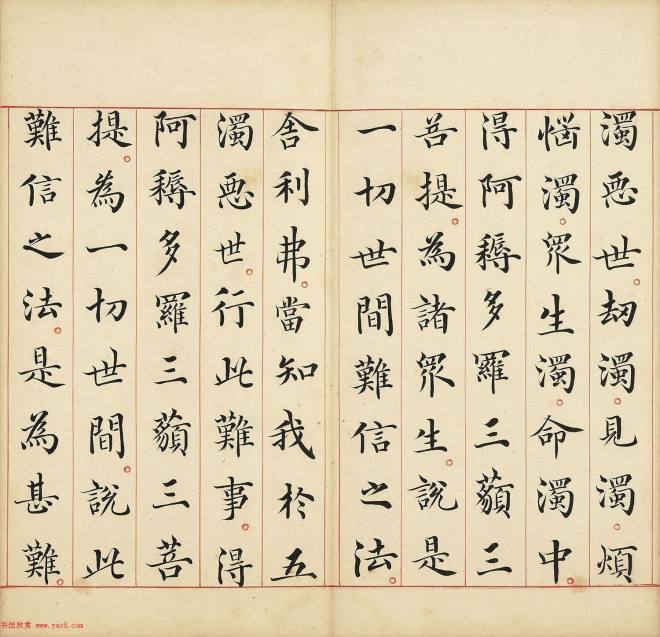 濁惡世劫濁見濁煩
惱濁眾生濁命濁中
得阿耨多羅三藐三
菩提為諸眾生說是
一切世間難信之法
舍利弗當知我於五
濁惡世行此難事得
阿耨多羅三藐三菩
提為一切世間說此
難信之法是為甚難
书法欣赏 www.yac8.com